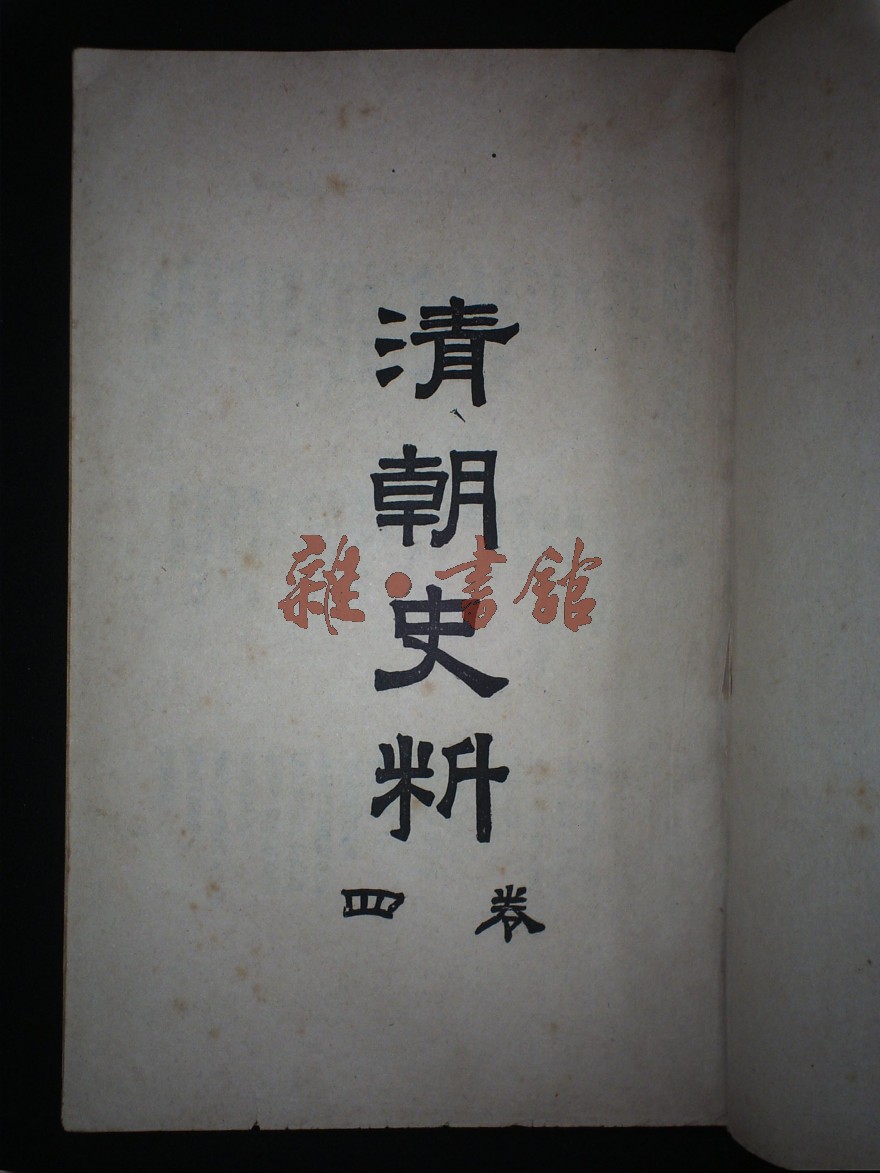 清朝史料
卷四
雜·書館